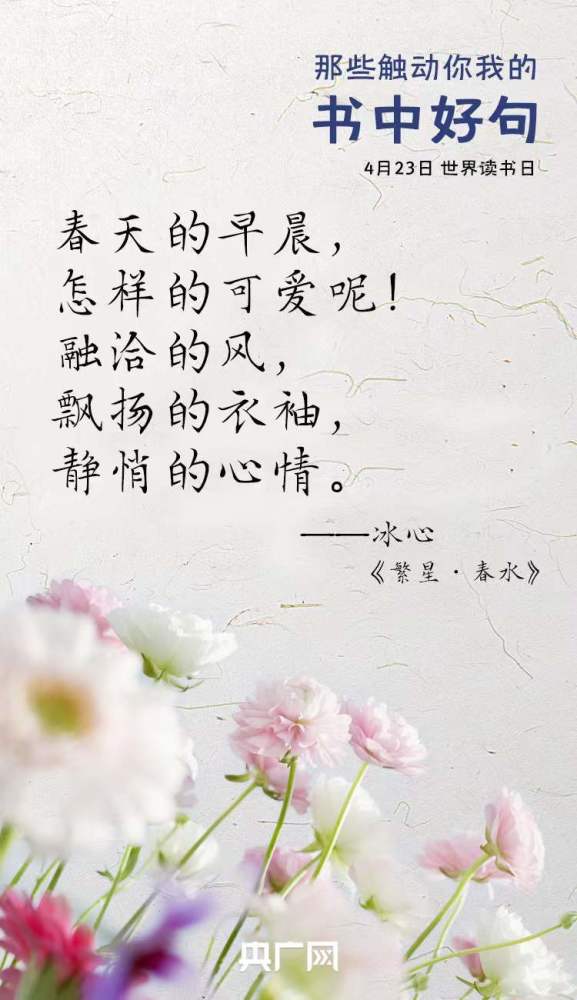 那些触动你我的
书中好句
4月23日 世界读书日
春天的早晨，
怎样的可爱呢！
融洽的风，
飘扬的衣袖，
静悄的心情。
——冰心
《繁星·春水》
央广网